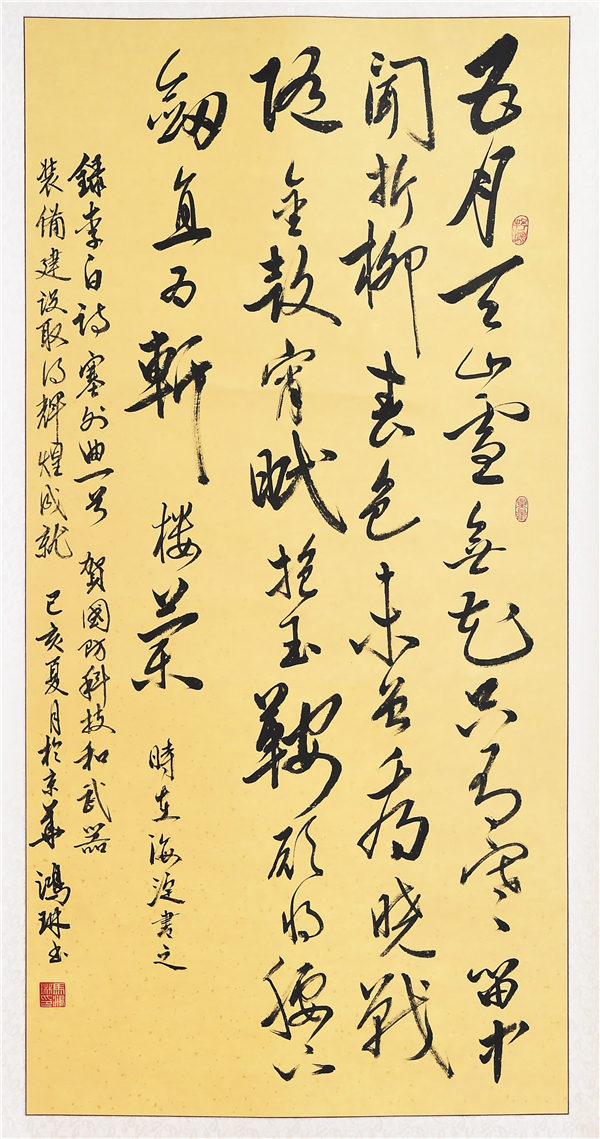 五月天山雪無花只有寒笛中
聞折柳春色未曾看曉戰
随金鼓宵眠抱玉鞍願将腰下
劒直为斬楼蘭 時在海淀書之
録李白詩塞外曲一首 賀國防科技和武器
装備建設取得輝煌成就 己亥夏月於京華 鴻琳书